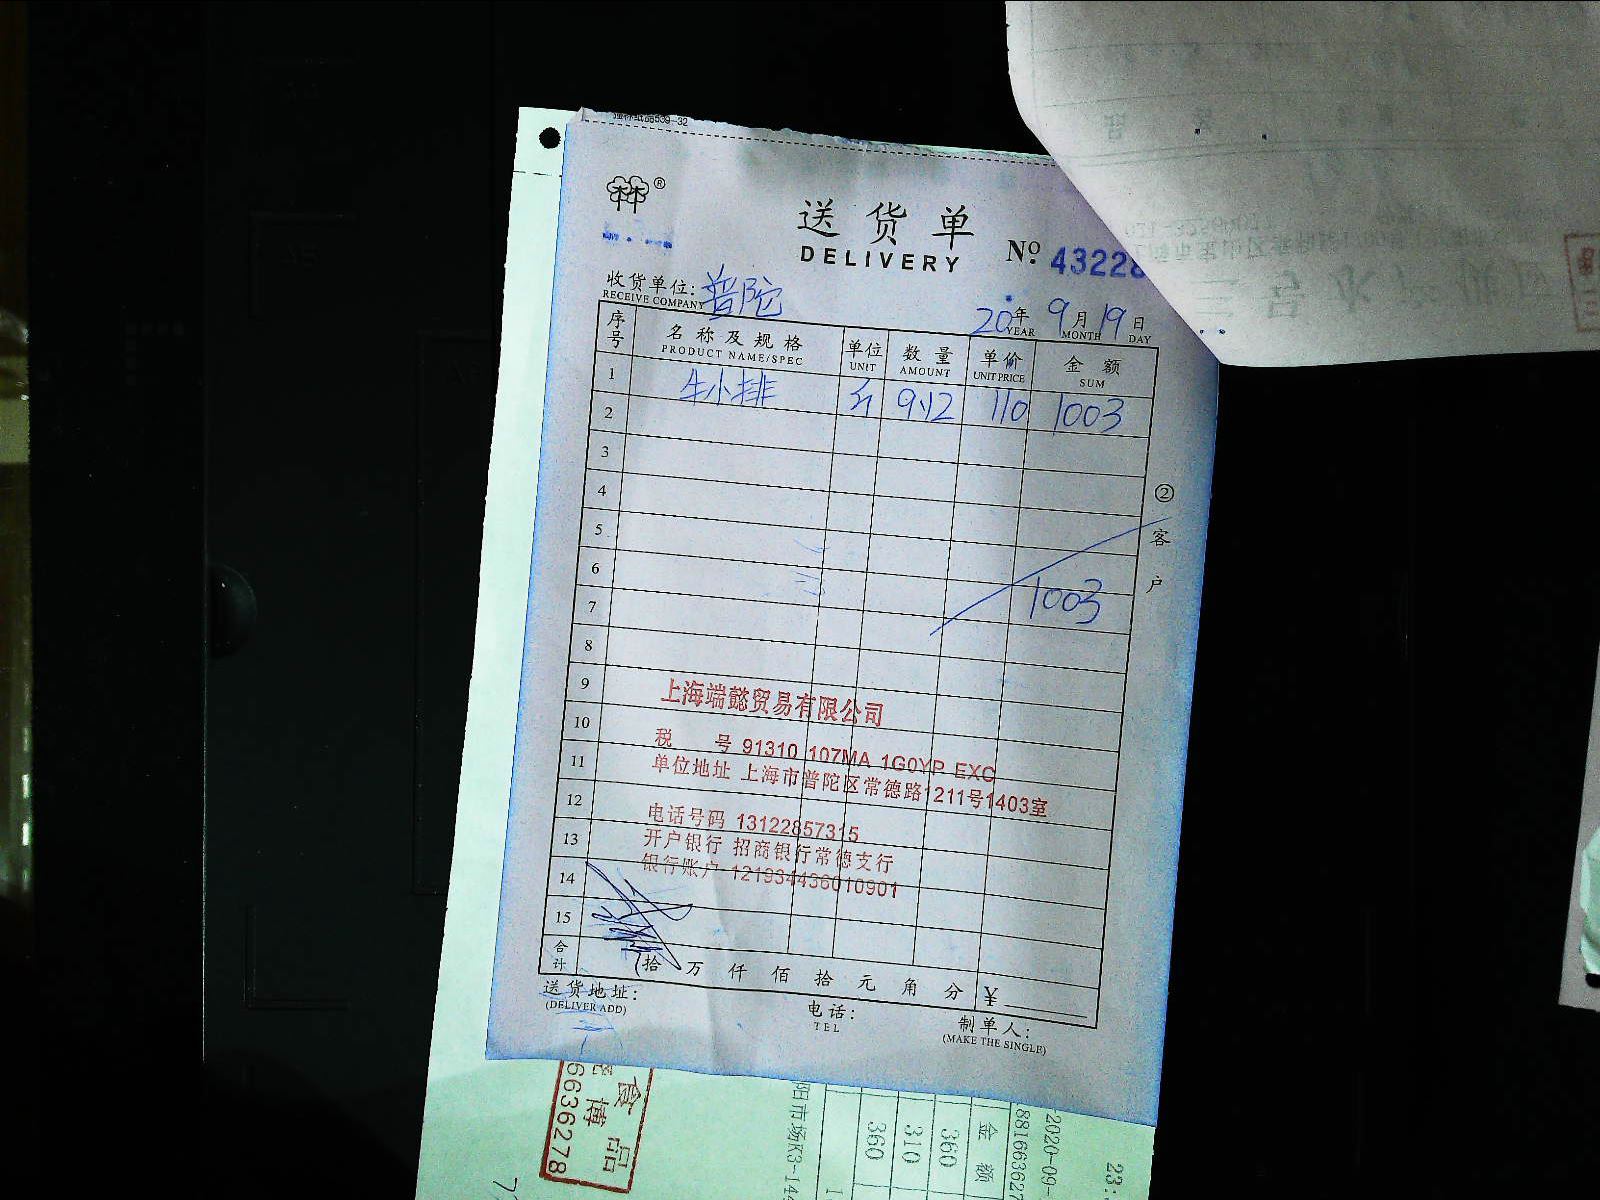 ®
送货单
DELIVERY
No. 43228
收货单位: 普陀
RECEIVE COMPANY
20年 9月 19日
YEAR MONTH DAY
序号 名称及规格 单位 数量 单价 金额
PRODUCT NAME/SPEC UNIT AMOUNT UNIT PRICE SUM
1 牛小排 斤 9.12 110 1003
2
3
4
5
6
7 1003
8
9
10
11
12
13
14
15
② 客户
上海端懿贸易有限公司
税 号 91310 107MA 1G0YP EXC
单位地址 上海市普陀区常德路1211号1403室
电话号码 13122857315
开户银行 招商银行常德支行
银行账户 121934436010901
合计 拾 万 仟 佰 拾 元 角 分 ¥
送货地址: 电话: 制单人:
(DELIVER ADD) TEL (MAKE THE SINGLE)
食品
博
6636278
阳市场K3-14
360
310
360
金额
2020-09-
881663627
23: